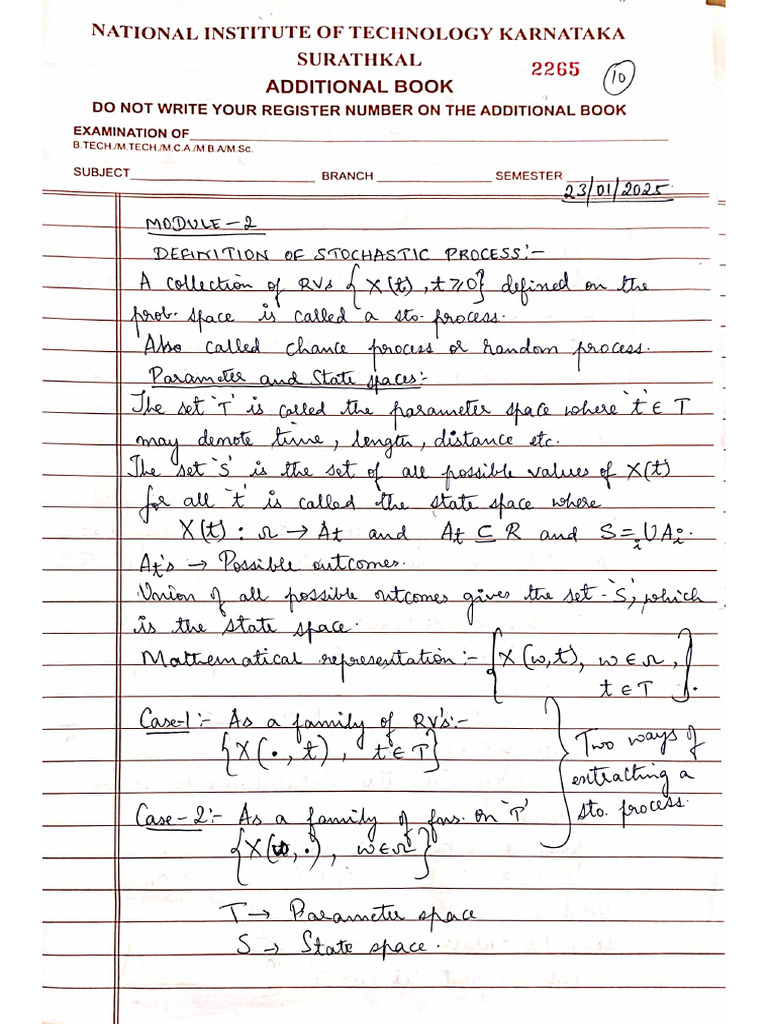 NATIONAL INSTITUTE OF TECHNOLOGY KARNATAKA
SURATHKAL
2265
10
ADDITIONAL BOOK
DO NOT WRITE YOUR REGISTER NUMBER ON THE ADDITIONAL BOOK
EXAMINATION OF
B.TECH./M.TECH./M.C.A./M.B.A/M.Sc.
SUBJECT BRANCH SEMESTER
23/01/2025.
MODULE-2
DEFINITION OF STOCHASTIC PROCESS:-
A collection of RVs {X(t), t≥0} defined on the
prob. space is called a sto. process.
Also called chance process or random process.
Parameter and State spaces:-
The set 'T' is called the parameter space where 't' ∈ T
may denote time, length, distance etc.
The set 'S' is the set of all possible values of X(t)
for all 't' is called the state space where
X(t) : Ω → At and At ⊆ R and S = ∪i Ai.
At's → Possible outcomes.
Union of all possible outcomes gives the set 'S', which
is the state space.
Mathematical representation:- {X(w,t), w ∈ Ω,
t ∈ T}.
Case-1:- As a family of RV's:-
{X(., t), t ∈ T}
Case-2:- As a family of fns. on 'T'
{X(w, .), w ∈ Ω}
Two ways of
extracting a
sto. process.
T → Parameter space
S → State space.